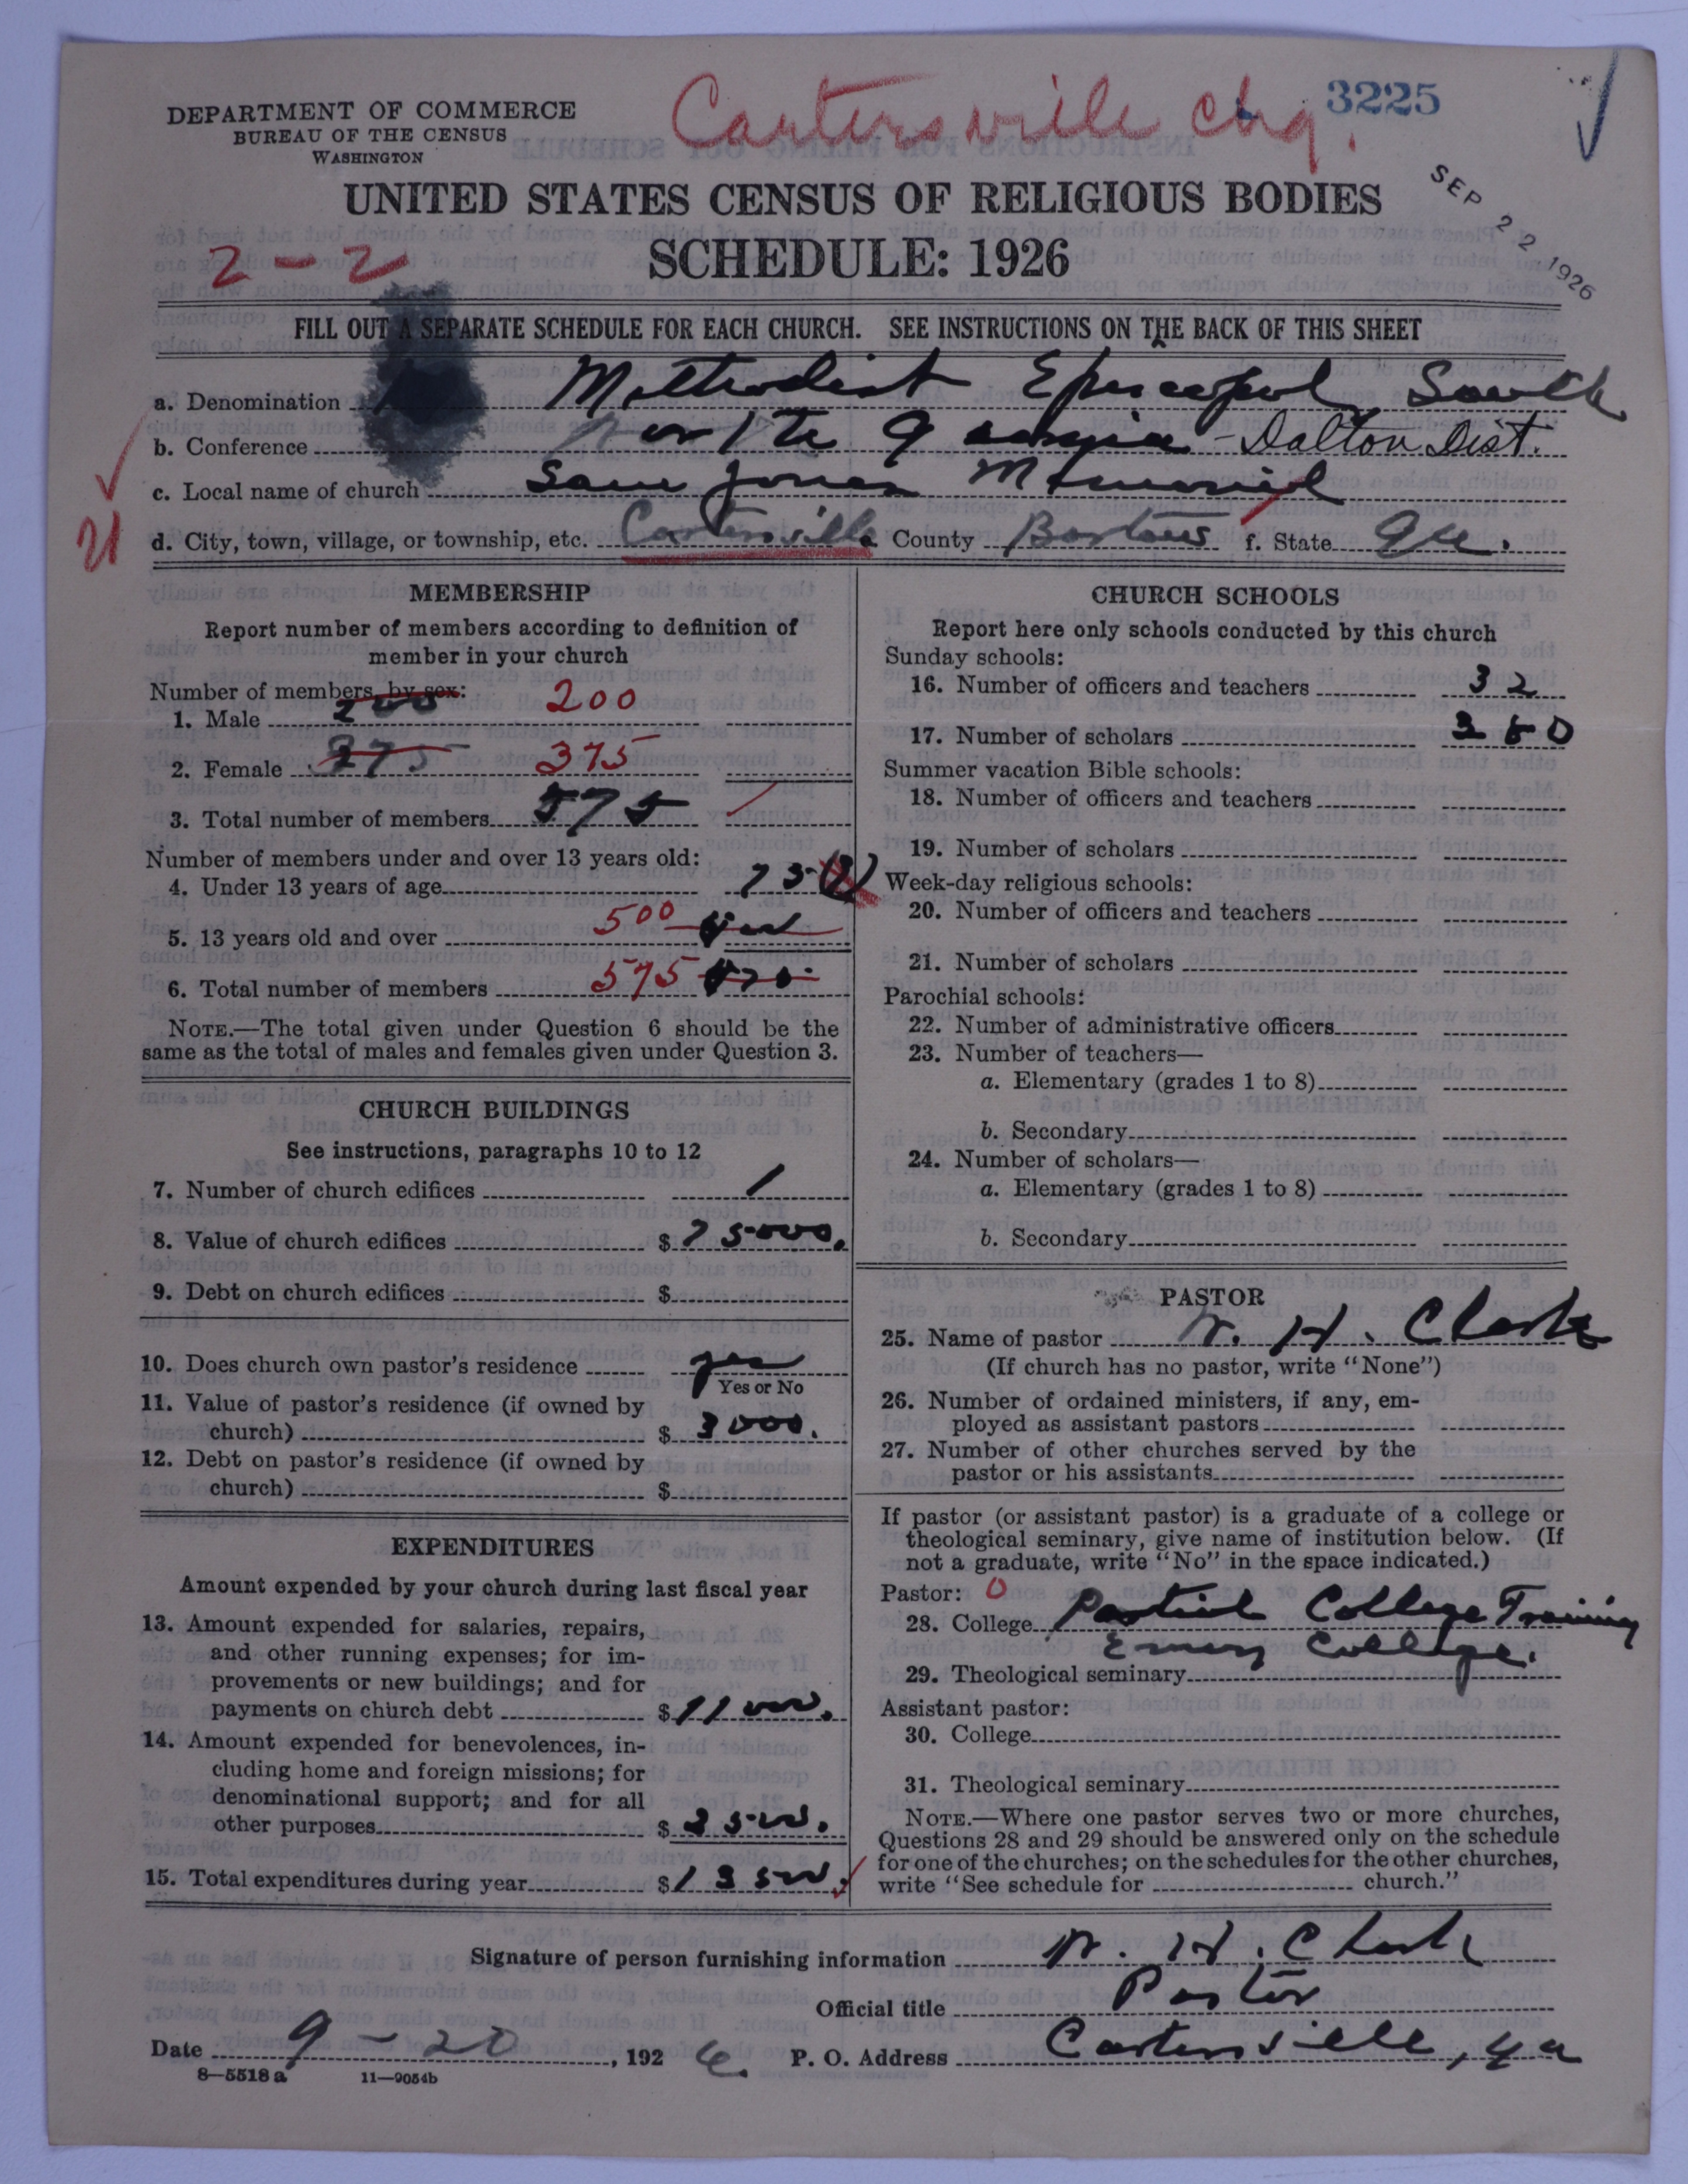 Cartersville chg. 3225
DEPARTMENT OF COMMERCE
BUREAU OF THE CENSUS
WASHINGTON
SEP 22 1926
UNITED STATES CENSUS OF RELIGIOUS BODIES
2-2
SCHEDULE: 1926
FILL OUT A SEPARATE SCHEDULE FOR EACH CHURCH. SEE INSTRUCTIONS ON THE BACK OF THIS SHEET
a. Denomination Methodist Episcopal South
b. Conference North Georgia - Dalton Dist.
c. Local name of church Sam Jones Memorial
21
d. City, town, village, or township, etc. Cartersville County Bartow f. State Ga.
MEMBERSHIP
Report number of members according to definition of
member in your church
Number of members by sex:
1. Male 200 200
2. Female 375 375
3. Total number of members 575
Number of members under and over 13 years old:
4. Under 13 years of age 75 (?)
5. 13 years old and over 500
6. Total number of members 575
NOTE.—The total given under Question 6 should be the
same as the total of males and females given under Question 3.
CHURCH BUILDINGS
See instructions, paragraphs 10 to 12
7. Number of church edifices 1
8. Value of church edifices $75000.
9. Debt on church edifices $
10. Does church own pastor's residence yes
Yes or No
11. Value of pastor's residence (if owned by
church) $ 3000.
12. Debt on pastor's residence (if owned by
church) $
EXPENDITURES
Amount expended by your church during last fiscal year
13. Amount expended for salaries, repairs,
and other running expenses; for im-
provements or new buildings; and for
payments on church debt $11000.
14. Amount expended for benevolences, in-
cluding home and foreign missions; for
denominational support; and for all
other purposes $2500.
15. Total expenditures during year $13500.
CHURCH SCHOOLS
Report here only schools conducted by this church
Sunday schools:
16. Number of officers and teachers 32
17. Number of scholars
Summer vacation Bible schools:
18. Number of officers and teachers
19. Number of scholars
Week-day religious schools:
20. Number of officers and teachers
21. Number of scholars
Parochial schools:
22. Number of administrative officers
23. Number of teachers—
a. Elementary (grades 1 to 8)
b. Secondary
24. Number of scholars—
a. Elementary (grades 1 to 8)
b. Secondary
PASTOR
25. Name of pastor W. H. Clark
(If church has no pastor, write "None")
26. Number of ordained ministers, if any, em-
ployed as assistant pastors
27. Number of other churches served by the
pastor or his assistants
If pastor (or assistant pastor) is a graduate of a college or
theological seminary, give name of institution below. (If
not a graduate, write "No" in the space indicated.)
Pastor: 0
28. College Partial College Training
Emory College.
29. Theological seminary
Assistant pastor:
30. College
31. Theological seminary
NOTE.—Where one pastor serves two or more churches,
Questions 28 and 29 should be answered only on the schedule
for one of the churches; on the schedules for the other churches,
write "See schedule for church."
Signature of person furnishing information W. H. Clark
Official title Pastor
Date 9-20, 1926. P. O. Address Cartersville, Ga
8—5518a 11—9054b